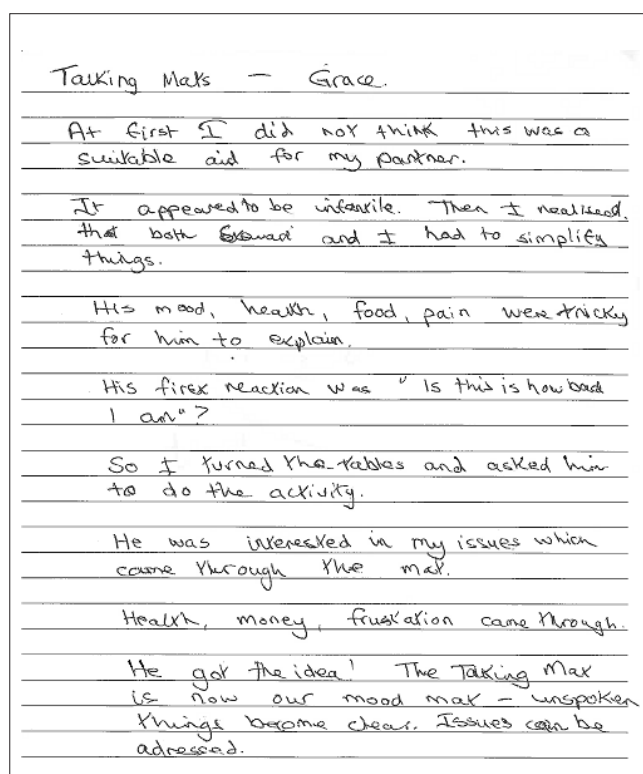 Talking Mats — Grace.
At first I did not think this was a
suitable aid for my partner.
It appeared to be infantile. Then I realised,
that both and I had to simplify
things.
His mood, health, food, pain were tricky
for him to explain.
His first reaction was " Is this is how bad
I am"?
So I turned the tables and asked him
to do the activity.
He was interested in my issues which
came through the mat.
Health, money, frustation came through.
He got the idea! The Talking Mat
is now our mood mat – unspoken
things become clear. Issues can be
adressed.